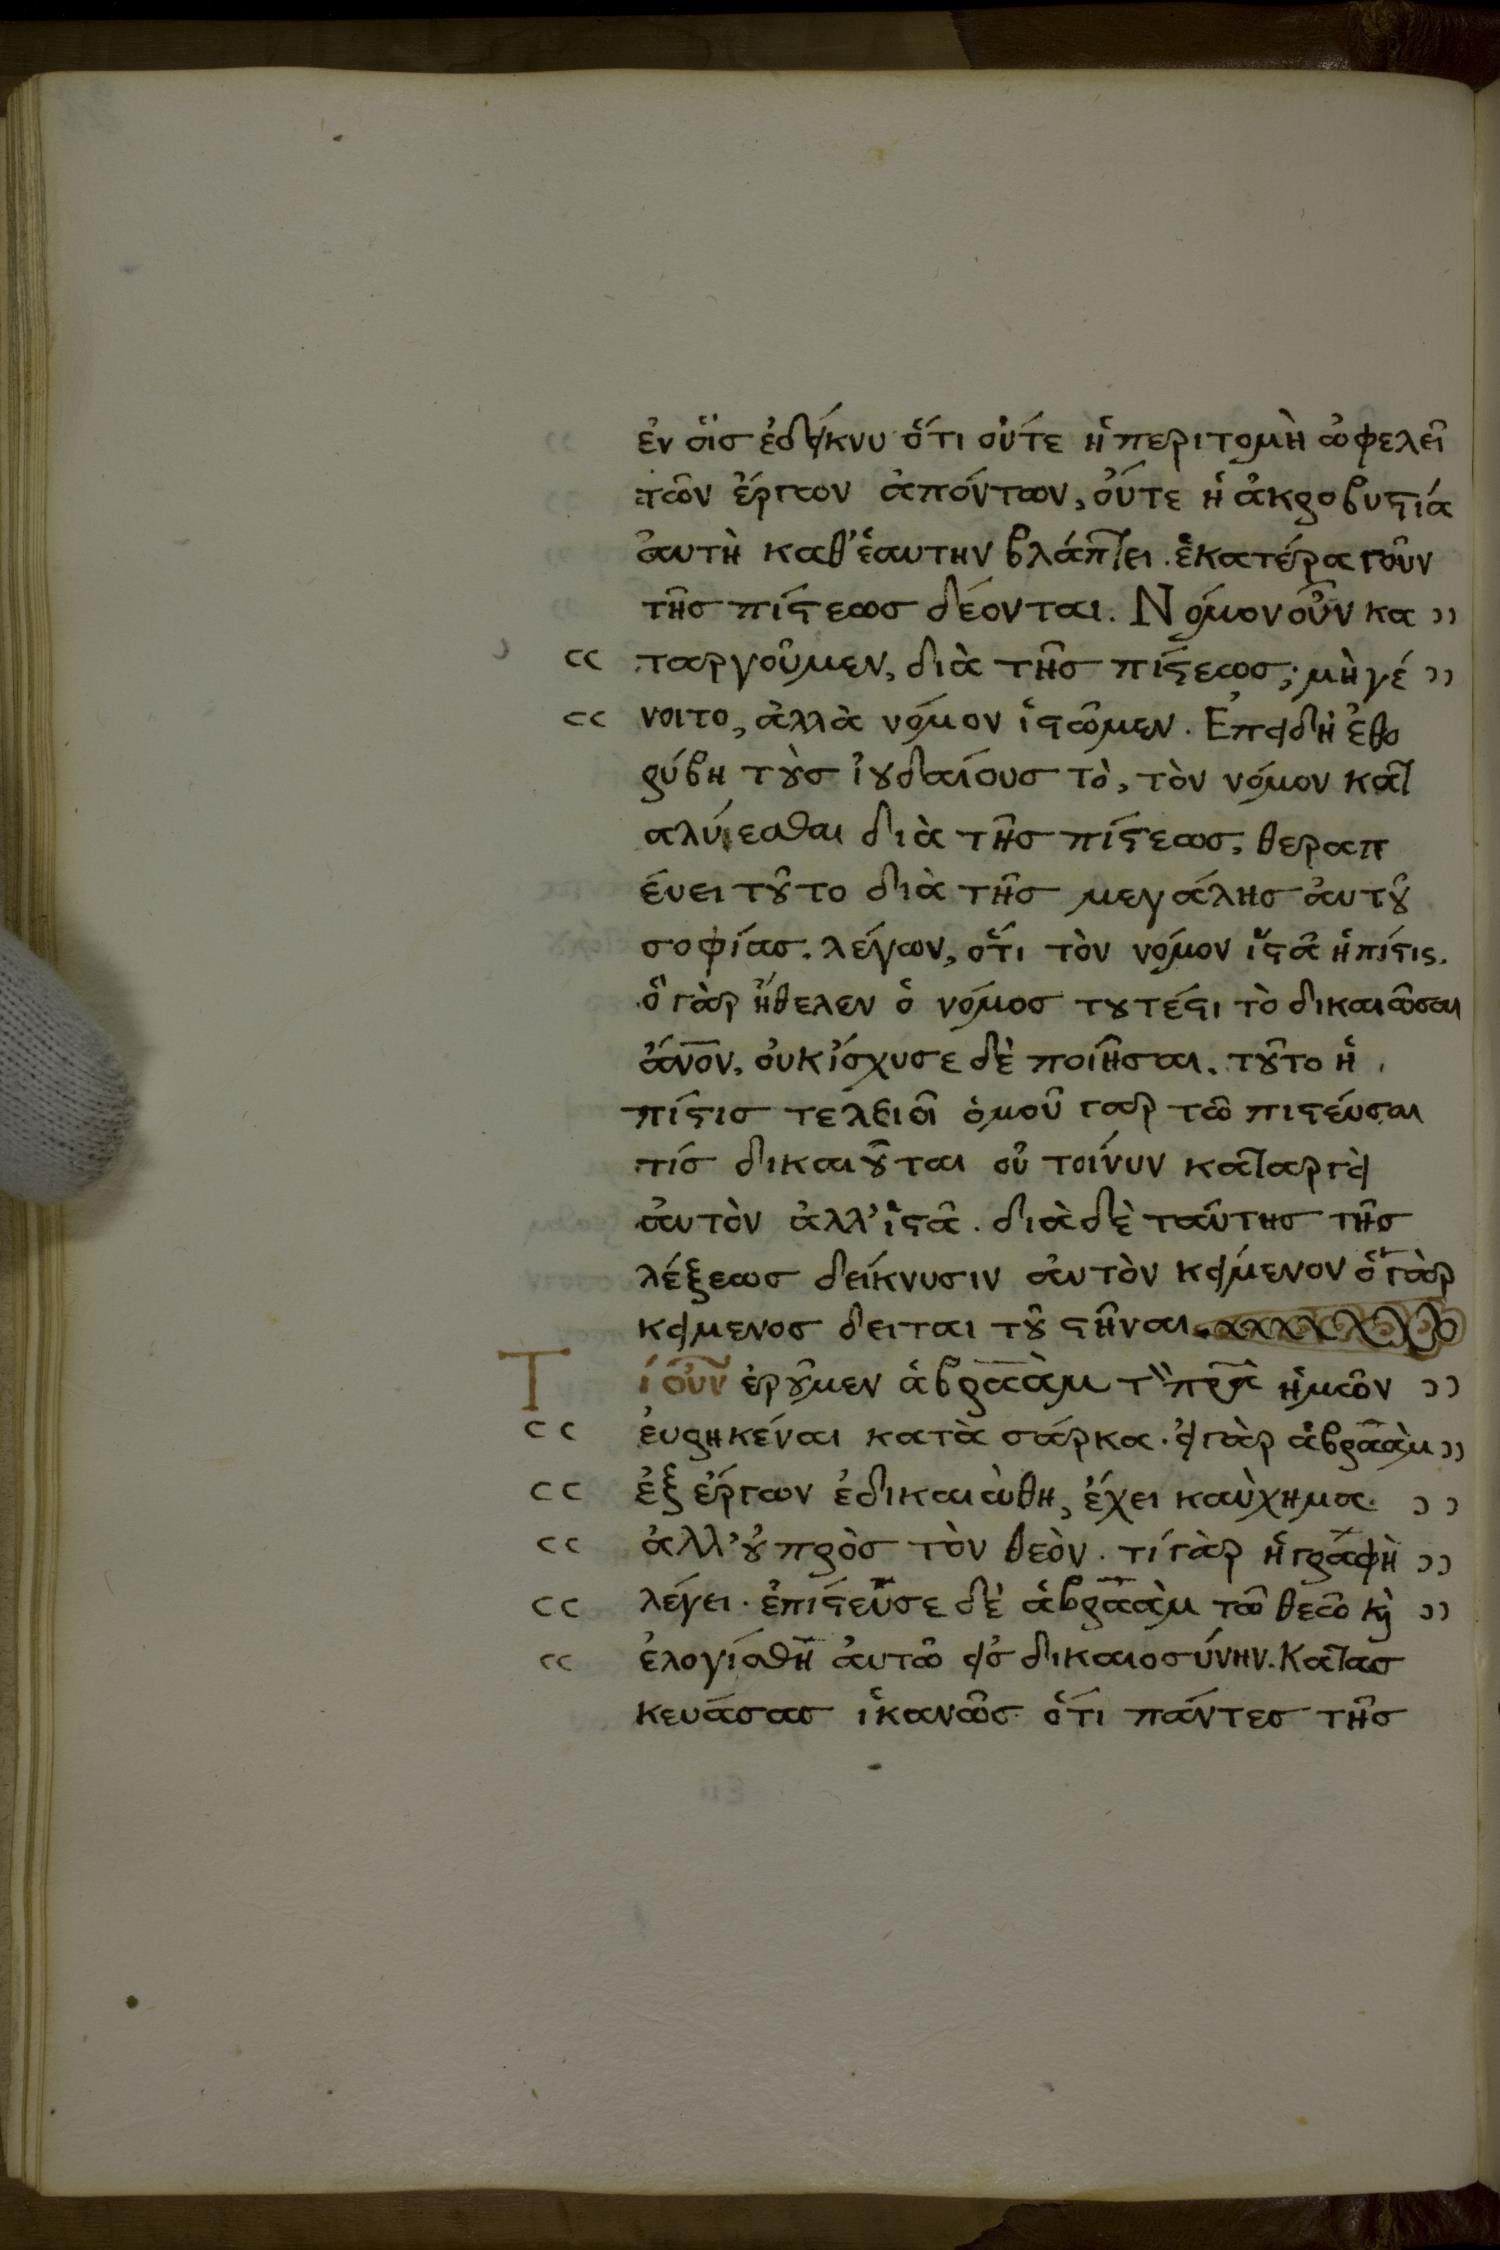 ἐν οἷσ ἐδείκνυ ὅτι οὔτε ἡ περιτομὴ ὠφελεῖ
τῶν ἔργων ἀπόντων, οὔτε ἡ ἀκροβυστία
ἀυτὴ καθ' ἑαυτην βλάπτει. ἑκατέρα γοῦν
τῆσ πίστεωσ δέονται. Νόμον οὖν κα ))
(( ταργοῦμεν, διὰ τῆσ πίστεωσ; μὴ γέ ))
(( νοιτο, ἀλλὰ νόμον ἱστῶμεν. Ἐπειδὴ ἐθο
ρύβη τοὺσ ἰουδαίουσ τὸ, τὸν νόμον κατ
αλύεσθαι διὰ τῆσ πίστεωσ, θεραπ
έυει τοῦτο διὰ τῆσ μεγάλησ ἀυτοῦ
σοφίασ. λέγων, ὅτι τὸν νόμον ἱστᾶ ἡ πίστις.
ὃ γὰρ ἤθελεν ὁ νόμοσ τουτέστι τὸ δικαιῶσαι
ἄνον, ουκ ἴσχυσε δὲ ποιῆσαι. τοῦτο ἡ
πίστισ τελειοῖ ὁμοῦ γαρ τῶ πιστέυσαι
τίσ δικαιοῦται οὐ τοίνυν καταργεῖ
ἀυτὸν ἀλλ' ἱστᾶ. διὰ δὲ ταύτησ τῆσ
λέξεωσ δείκνυσιν αὐτὸν κείμενον ὁ γὰρ
κείμενοσ δειται τοῦ στῆναι.
Τί οὖν ἐροῦμεν ἁβραὰμ τὸν πρα ἡμῶν ))
(( ἑυρηκέναι κατὰ σάρκα. εἰ γὰρ ἁβραὰμ ))
(( ἐξ ἔργων ἐδικαιώθη, ἔχει καύχημα. ))
(( ἀλλ' οὐ πρὸσ τὸν θεὸν. τί γὰρ ἡ γραφὴ ))
(( λέγει. ἐπίστευσε δὲ ἁβραὰμ τῶ θεῶ κὶ ))
(( ἐλογίσθη ἀυτῶ εἰσ δικαιοσύνην. Κατασ
κευάσασ ἱκανῶσ ὅτι πάντεσ τῆσ